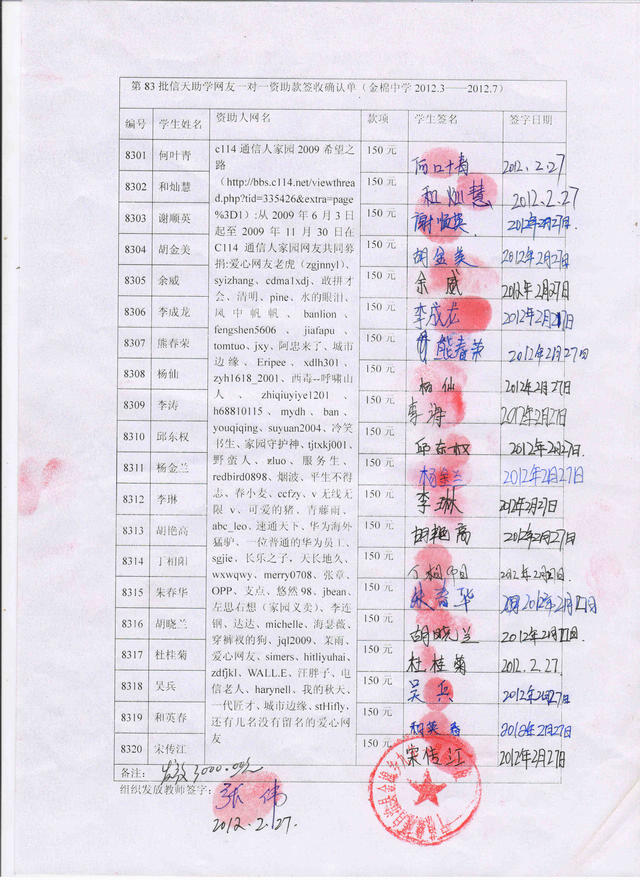 第 83 批信天助学网友一对一资助款签收确认单（金棉中学 2012.3——2012.7）
编号 学生姓名 资助人网名 款项 学生签名 签字日期
8301 何叶青 150 元 何叶青 2012.2.27
8302 和灿慧 150 元 和灿慧 2012.2.27
8303 谢顺英 150 元 谢顺英 2012年2月27日
8304 胡金美 150 元 胡金美 2012年2月27日
8305 余威 150 元 余威 2012年2月27日
8306 李成龙 150 元 李成龙 2012年2月27日
8307 熊春荣 150 元 熊春荣 2012年2月27日
8308 杨仙 150 元 杨仙 2012年2月27日
8309 李涛 150 元 李涛 2012年2月27日
8310 邱东权 150 元 邱东权 2012年2月27日
8311 杨金兰 150 元 杨金兰 2012年2月27日
8312 李琳 150 元 李琳 2012年2月27日
8313 胡艳高 150 元 胡艳高 2012年2月27日
8314 丁相阳 150 元 丁相阳 2012年2月27日
8315 朱春华 150 元 朱春华 2012年2月27日
8316 胡晓兰 150 元 胡晓兰 2012年2月27日
8317 杜桂菊 150 元 杜桂菊 2012.2.27
8318 吴兵 150 元 吴兵 2012年2月27日
8319 和英春 150 元 和英春 2012年2月27日
8320 宋传江 150 元 宋传江 2012年2月27日
c114 通信人家园 2009 希望之
路
（http://bbs.c114.net/viewthrea
d.php?tid=335426&extra=page
%3D1）:从 2009 年 6 月 3 日
起至 2009 年 11 月 30 日在
C114 通信人家园网友共同募
捐:爱心网友老虎（zgjnnyl）、
syizhang、cdma1xdj、敢拼才
会、清明、pine、水的眼泪、
风中帆帆、banlion、
fengshen5606、jiafapu、
tomtuo、jxy、阿忠来了、城市
边缘、Eripee、xdlh301、
zyh1618_2001、西毒--呼啸山
人、zhiqiuyiye1201、
h68810115、mydh、ban、
youqiqing、suyuan2004、冷笑
书生、家园守护神、tjtxkj001、
野蛮人、zluo、服务生、
redbird0898、烟波、平生不得
志、春小麦、ccfzy、v 无线无
限 v、可爱的猪、青藤雨、
abc_leo、速通天下、华为海外
猛驴、一位普通的华为员工、
sgjie、长乐之子，天长地久、
wxwqwy、merry0708、张章、
OPP、支点、悠然 98、jbean、
左思右想（家园义卖）、李连
钢、达达、michelle、海瑟薇、
穿裤衩的狗、jql2009、茉雨、
爱心网友、simers、hitliyuhai、
zdfjkl、WALL.E、汪胖子、电
信老人、harynell、我的秋天、
一代匠才、城市边缘、stHifly、
还有几名没有留名的爱心网
友
备注： 发放3000.00元
组织发放教师签字： 张伟
2012.2.27.